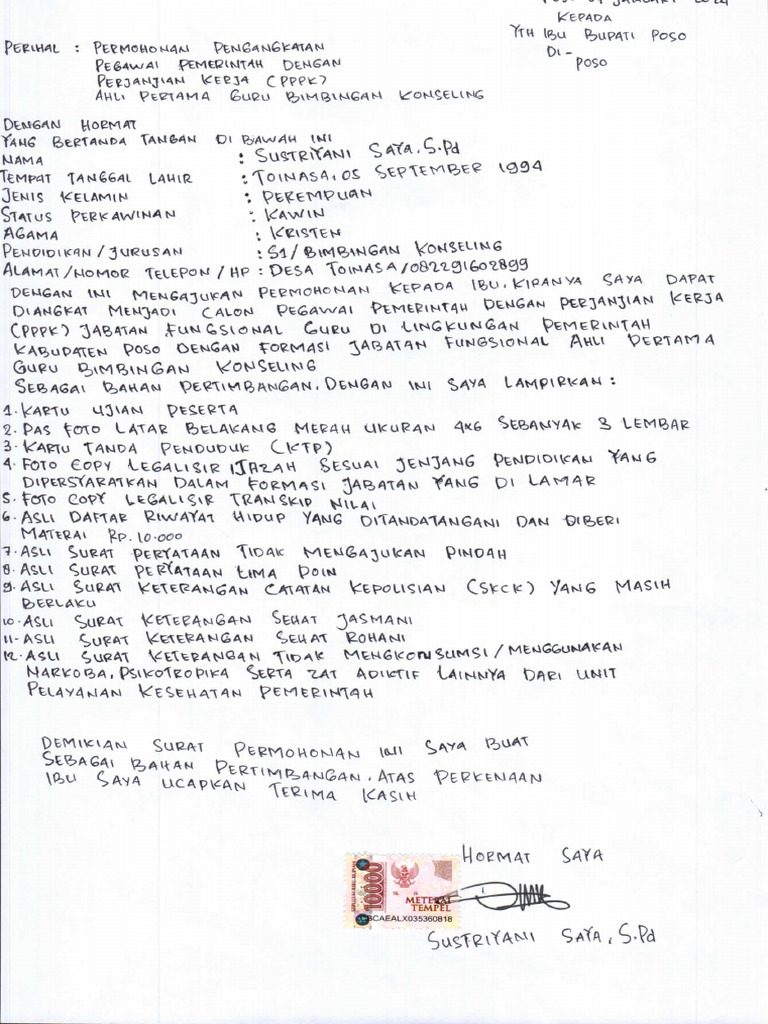 POSO 04 JANUARI 2024
KEPADA
YTH IBU BUPATI POSO
DI-
POSO
PERIHAL : PERMOHONAN PENGANGKATAN
PEGAWAI PEMERINTAH DENGAN
PERJANJIAN KERJA (PPPK)
AHLI PERTAMA GURU BIMBINGAN KONSELING
DENGAN HORMAT
YANG BERTANDA TANGAN DI BAWAH INI
NAMA : SUSTRIYANI SAYA, S.Pd
TEMPAT TANGGAL LAHIR : TOINASA, 05 SEPTEMBER 1994
JENIS KELAMIN : PEREMPUAN
STATUS PERKAWINAN : KAWIN
AGAMA : KRISTEN
PENDIDIKAN / JURUSAN : S1 / BIMBINGAN KONSELING
ALAMAT/NOMOR TELEPON / HP : DESA TOINASA/082291602899
DENGAN INI MENGAJUKAN PERMOHONAN KEPADA IBU, KIRANYA SAYA DAPAT
DIANGKAT MENJADI CALON PEGAWAI PEMERINTAH DENGAN PERJANJIAN KERJA
(PPPK) JABATAN FUNGSIONAL GURU DI LINGKUNGAN PEMERINTAH
KABUPATEN POSO DENGAN FORMASI JABATAN FUNGSIONAL AHLI PERTAMA
GURU BIMBINGAN KONSELING
SEBAGAI BAHAN PERTIMBANGAN, DENGAN INI SAYA LAMPIRKAN :
1. KARTU UJIAN PESERTA
2. PAS FOTO LATAR BELAKANG MERAH UKURAN 4x6 SEBANYAK 3 LEMBAR
3. KARTU TANDA PENDUDUK (KTP)
4. FOTO COPY LEGALISIR IJAZAH SESUAI JENJANG PENDIDIKAN YANG
DIPERSYARATKAN DALAM FORMASI JABATAN YANG DI LAMAR
5. FOTO COPY LEGALISIR TRANSKIP NILAI
6. ASLI DAFTAR RIWAYAT HIDUP YANG DITANDATANGANI DAN DIBERI
MATERAI Rp. 10.000
7. ASLI SURAT PERYATAAN TIDAK MENGAJUKAN PINDAH
8. ASLI SURAT PERYATAAN LIMA POIN
9. ASLI SURAT KETERANGAN CATATAN KEPOLISIAN (SKCK) YANG MASIH
BERLAKU
10. ASLI SURAT KETERANGAN SEHAT JASMANI
11. ASLI SURAT KETERANGAN SEHAT ROHANI
12. ASLI SURAT KETERANGAN TIDAK MENGKONSUMSI / MENGGUNAKAN
NARKOBA, PSIKOTROPIKA SERTA ZAT ADIKTIF LAINNYA DARI UNIT
PELAYANAN KESEHATAN PEMERINTAH
DEMIKIAN SURAT PERMOHONAN INI SAYA BUAT
SEBAGAI BAHAN PERTIMBANGAN. ATAS PERKENAAN
IBU SAYA UCAPKAN TERIMA KASIH
HORMAT SAYA
10000
METERAI
TEMPEL
BCAEALX035360818
SUSTRIYANI SAYA, S.Pd